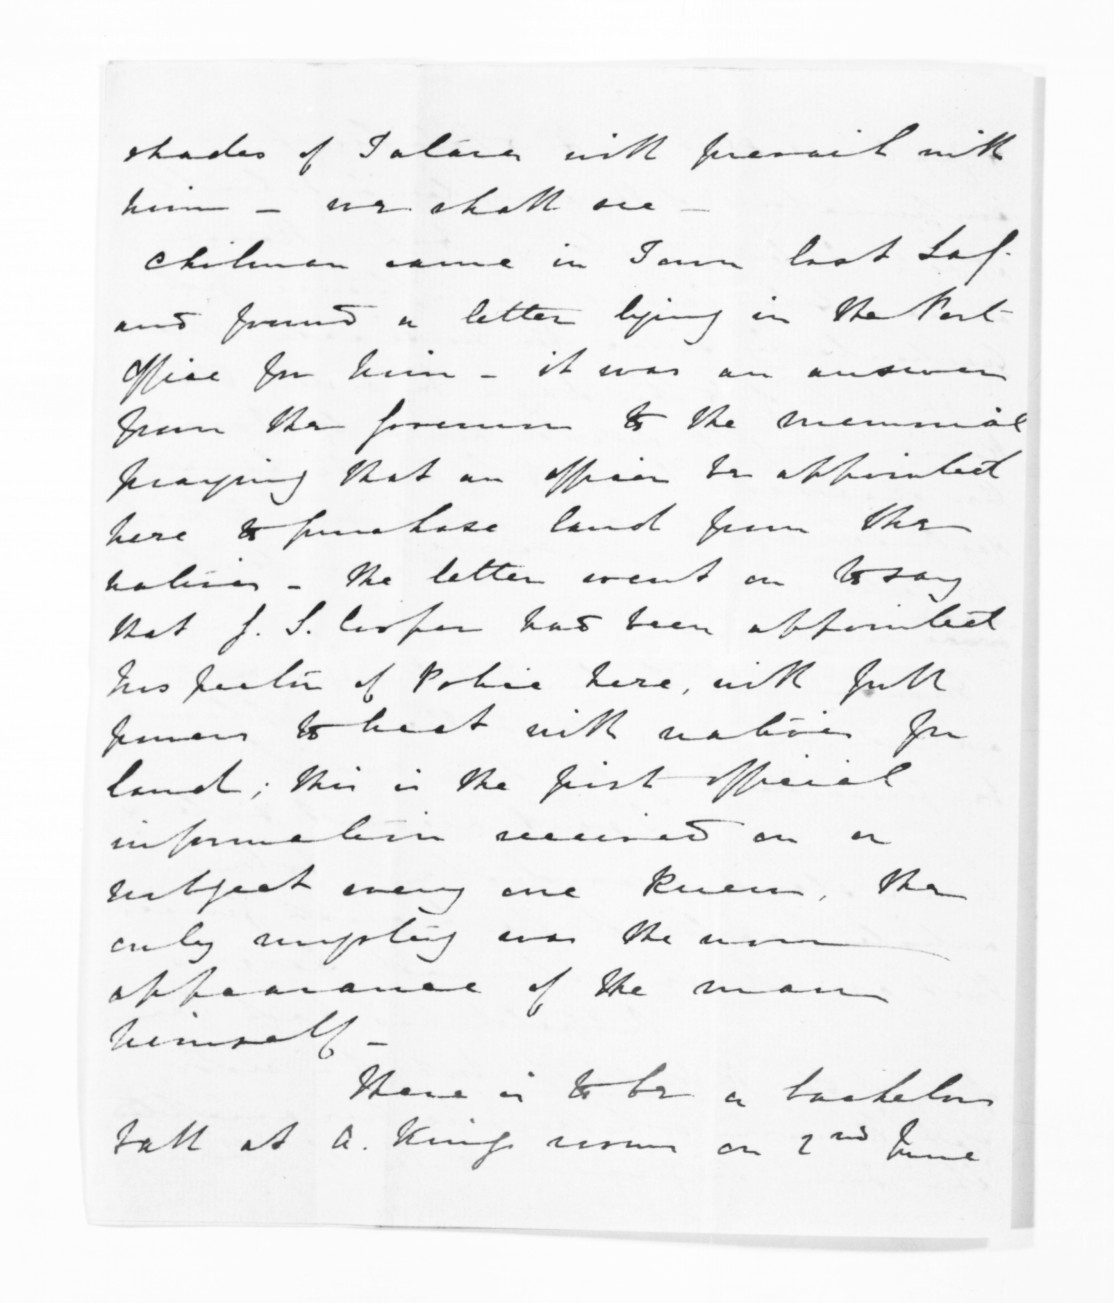 shades of Tatara will prevail with
him – we shall see –
Chilman came in Town last Saty.
and found a letter lying in the Post
Office for him – it was an answer
from the Governor to the memorial
praying that an officer be appointed
here to purchase land from the
natives – the letter went on to say
that J. S. Cooper had been appointed
Inspector of Police here, with full
powers to treat with natives for
land; this is the first official
information received on a
subject every one knew, the
only mystery was the non
appearance of the man
himself –
There is to be a bachelors
ball at A. Kings rooms on 2nd June